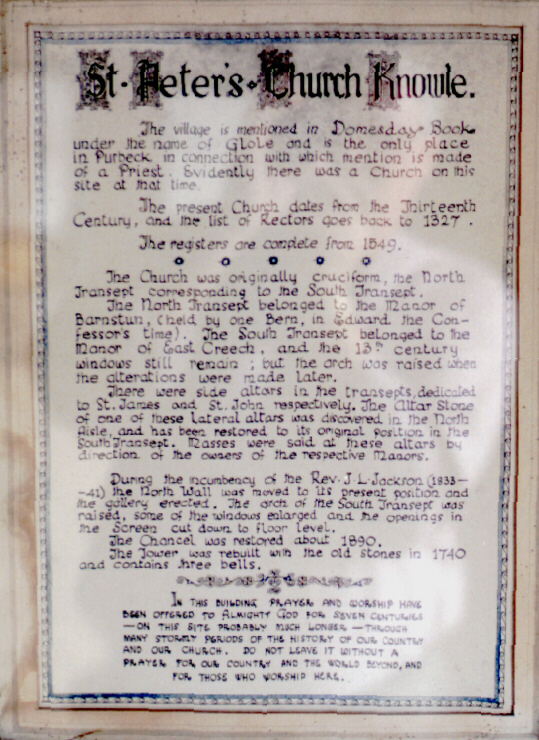 St. Peter's Church Knowle.
The village is mentioned in Domesday Book
under the name of Glole and is the only place
in Purbeck in connection with which mention is made
of a Priest. Evidently there was a Church on this
site at that time.
The present Church dates from the Thirteenth
Century, and the list of Rectors goes back to 1327.
The registers are complete from 1549.
The Church was originally cruciform, the North
Transept corresponding to the South Transept.
The North Transept belonged to the Manor of
Barnstun, (held by one Bern, in Edward the Con-
fessor's time). The South Transept belonged to the
Manor of East Creech, and the 13th century
windows still remain; but the arch was raised when
the alterations were made later.
There were side altars in the transepts, dedicated
to St. James and St. John respectively. The Altar Stone
of one of these lateral altars was discovered in the North
Aisle, and has been restored to its original position in the
South Transept. Masses were said at these altars by
direction of the owners of the respective Manors.
During the incumbency of the Rev. J. L. Jackson (1833-
-41) the North Wall was moved to its present position and
the gallery erected. The arch of the South Transept was
raised, some of the windows enlarged and the openings in
the Screen cut down to floor level.
The Chancel was restored about 1890.
The Tower was rebuilt with the old stones in 1740
and contains three bells.
In this building prayer and worship have
been offered to Almighty God for seven centuries
— on this site probably much longer — through
many stormy periods of the history of our country
and our church. Do not leave it without a
prayer for our country and the world beyond, and
for those who worship here.